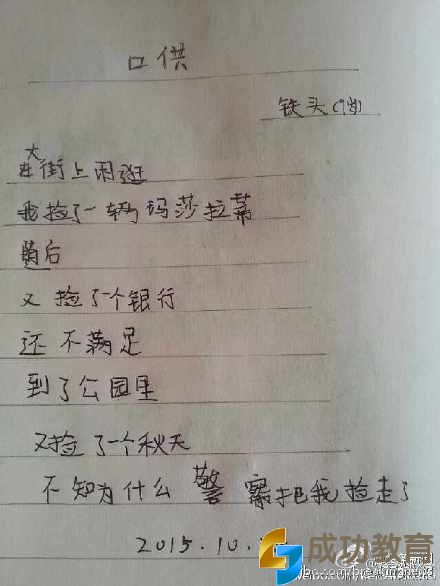 口供
铁头(9岁)
在大街上闲逛
我捡了一辆玛莎拉蒂
随后
又捡了个银行
还不满足
到了公园里
又捡了一个秋天
不知为什么警察把我捡走了
2015.10.
成功教育